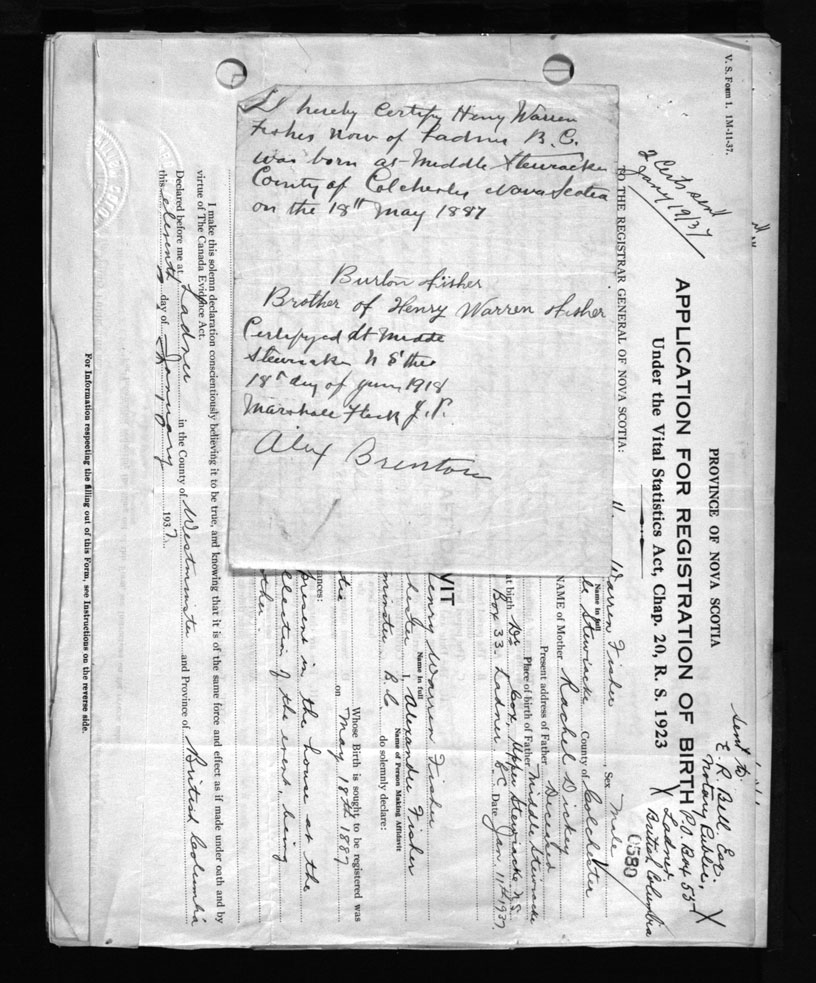 I hereby Certify Henry Warren
Fisher now of Ladner B.C.
was born at Middle Stewiacke
County of Colchester Nova Scotia
on the 18th May 1887
Burton Fisher
Brother of Henry Warren Fisher
Certifyed At Midde
Stewiacke N S the
18th day of 1918
Marshall Fleck J.P.
Alex Brenton
V. S. Form 1. 1M-11-37.
2 Certs sent
Jany 19/37
PROVINCE OF NOVA SCOTIA
APPLICATION FOR REGISTRATION OF BIRTH
Under the Vital Statistics Act, Chap. 20, R. S. 1923
sent to
E. R. Bell Esq.
Notary Public,
P.O. Box 55
X Ladner X
British Columbia
0580
TO THE REGISTRAR GENERAL OF NOVA SCOTIA:
Warren Fisher , Sex Male
Name in full
Stewiacke County of Colchester
NAME of Mother Rachel Dickey
Present address of Father Deceased
Place of birth of Father Middle Stewiacke
at birth Dr Cox, Upper Stewiacke N.S.
Box 33. Ladner B.C. Date Jan. 11th 1937
VIT
Henry Warren Fisher
Name in full
I, Alexander Fisher
Name of Person Making Affidavit
minster B.C. do solemnly declare:
Whose Birth is sought to be registered was
on May 18th 1887
ances:
present in the house at the
llection of the event, being
ther.
I make this solemn declaration conscientiously believing it to be true, and knowing that it is of the same force and effect as if made under oath and by
virtue of The Canada Evidence Act.
Declared before me at Ladner in the County of Westminster and Province of British Columbia
this eleventh day of January 1937
For Information respecting the filling out of this Form, see Instructions on the reverse side.